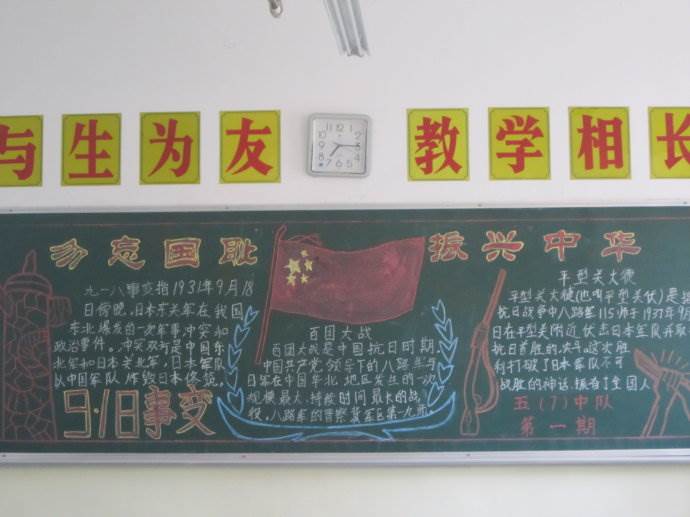 与生为友
教学相长
勿忘国耻
振兴中华
九一八事变指1931年9月18
日傍晚,日本东关军在我国
东北爆发的一次军事冲突和
政治事件。冲突双方是中国东
北军和日本关东军,日本军队
以中国军队炸毁日本修筑
9·18事变
百团大战
百团大战是中国抗日时期,
中国共产党领导下的八路军与
日军在中国华北地区发生的一次
规模最大、持续时间最长的战
役,八路军的晋察冀军区第一九
平型关大捷
平型关大捷(也叫平型关伏)是
抗日战争中八路军115师于1937年9
日在平型关附近伏击日本军队并取
抗日首胜的
利打破了日本军队不可
战胜的神话,振奋了全国人
五(7)中队
第一期
12
11
10
9
8
7
6
5
4
3
2
1